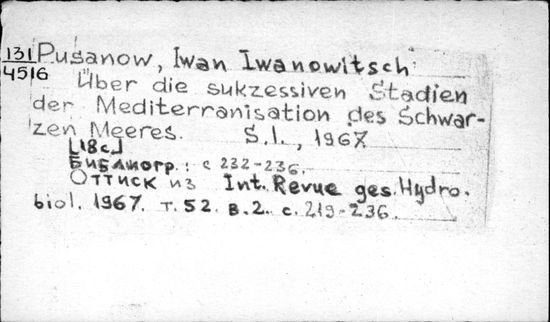 131
4516
Pusanow, Iwan Iwanowitsch
Über die sukzessiven Stadien
der Mediterranisation des Schwar-
zen Meeres. S.l., 1967
[18c]
Библиогр.: с 232-236.
Оттиск из Int. Revue ges. Hydro.
biol. 1967. т. 52. в. 2. с. 219-236.